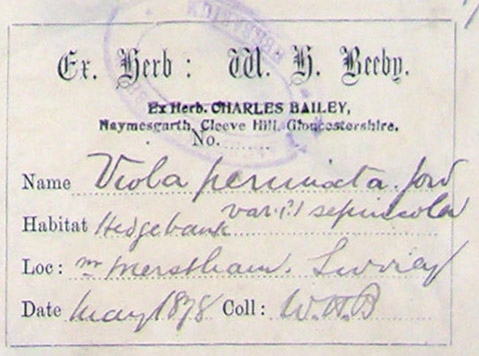 Ex. Herb: W. H. Beeby.
Ex Herb. CHARLES BAILEY,
Haymesgarth, Cleeve Hill, Gloucestershire.
No.
Name Viola permixta. Jord
var:?! sepincola
Habitat Hedgebank
Loc: nr Merstham. Surrey
Date May 1878 Coll: W.H.B